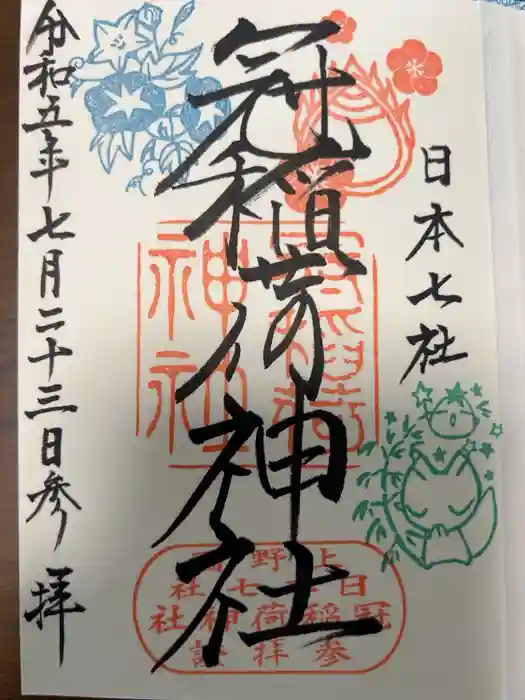 日本七社
冠稲荷神社
令和五年七月二十三日参拝
冠稲荷
神社
上野
日本七社
冠稲荷神社
参拝証